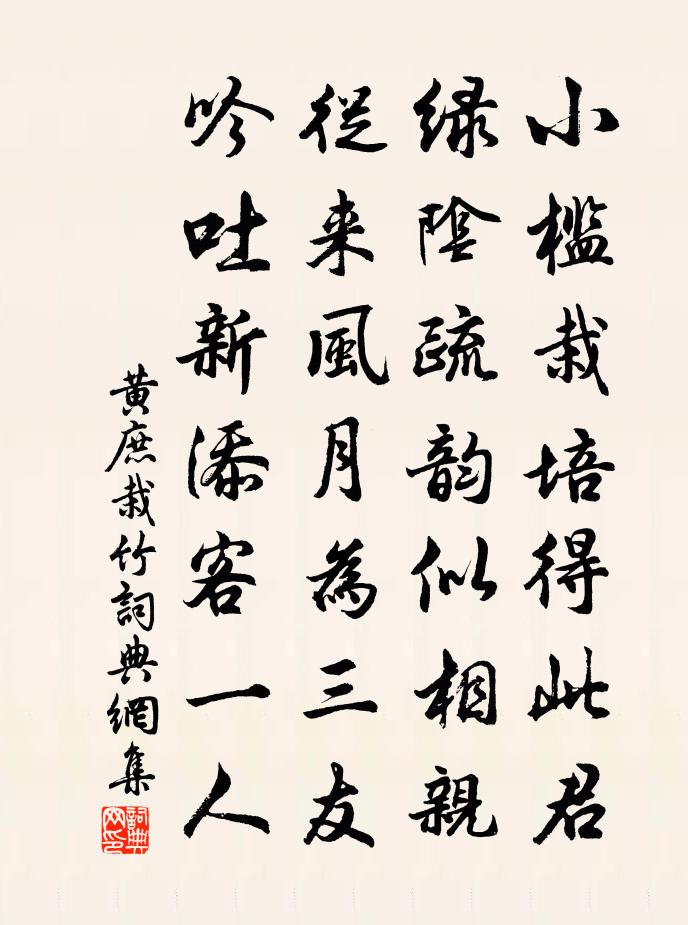 小檻栽培得此君
綠陰疏韵似相親
從来風月為三友
吟吐新添客一人
黃庶栽竹詞典網集
詞典網印